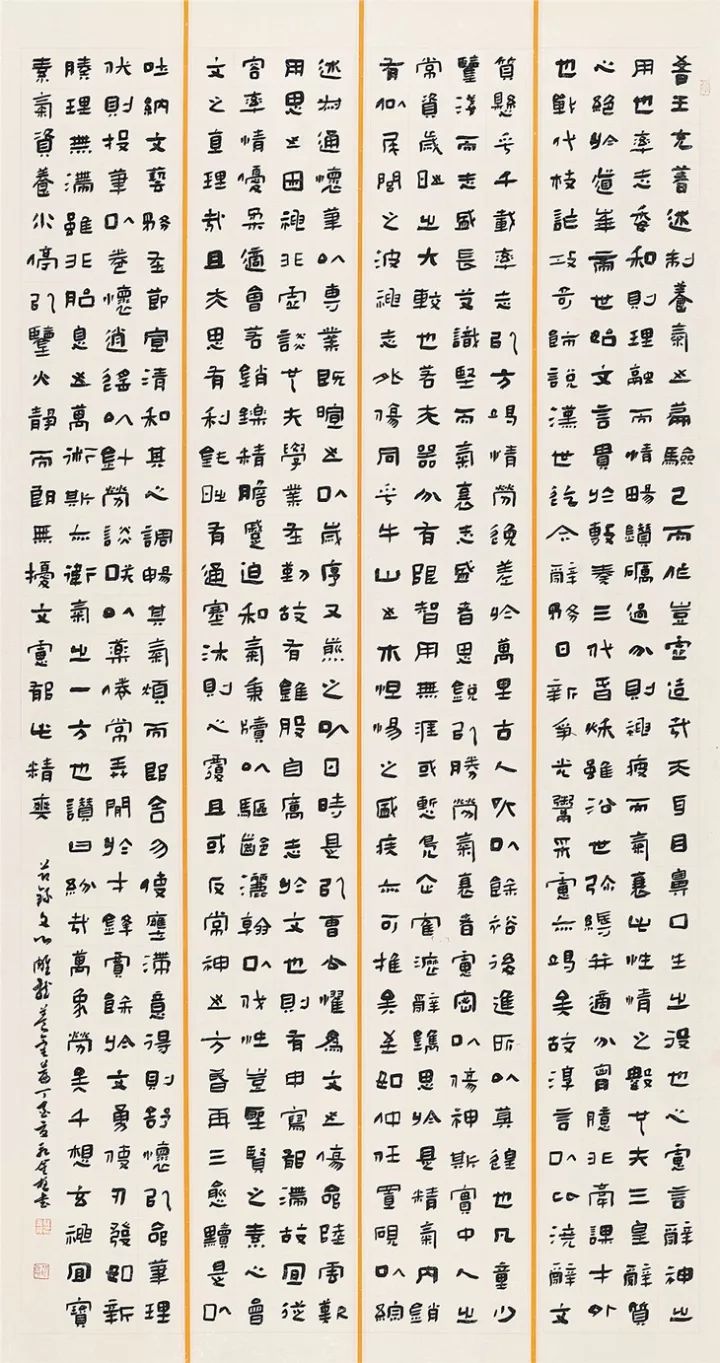 昔王充著述制養氣之篇驗己而作豈虛造哉夫耳目鼻口生之役也心慮言辭神之
用也率志委和則理融而情暢鑽礪過分則神疲而氣衰此性情之數也夫三皇辭質
心絕於道華帝世始文言貴於敷奏三代春秋雖沿世彌縟并適分胸臆非牽課才外
也戰代枝詐攻奇飾說漢世迄今辭務日新爭光鬻采慮亦竭矣故淳言以比澆辭文
質懸乎千載率志以方竭情勞逸差於萬里古人所以餘裕後進所以莫遑也凡童少
鑒淺而志盛長艾識堅而氣衰志盛者思銳以勝勞氣衰者慮密以傷神斯實中人之
常資歲時之大較也若夫器分有限智用無涯或慙鳧企鶴瀝辭鐫思於是精氣內銷
有似尾閭之波神志外傷同乎牛山之木怛惕之盛疾亦可推矣至如仲任置硯以綜
述叔通懷筆以專業既暄之以歲序又煎之以日時是以曹公懼為文之傷命陸雲歎
用思之困神非虛談也夫學業在勤故有錐股自厲志於文也則有申寫鬱滯故宜從
容率情優柔適會若銷鑠精膽蹙迫和氣秉牘以驅齡灑翰以伐性豈聖賢之素心會
文之直理哉且夫思有利鈍時有通塞沐則心覆且或反常神之方昏再三愈黷是以
吐納文藝務在節宣清和其心調暢其氣煩而即舍勿使壅滯意得則舒懷以命筆理
伏則投筆以卷懷逍遙以針勞談咲以藥倦常弄閑於才鋒賈餘於文勇使刃發如新
腠理無滯雖非胎息之萬術斯亦衛氣之一方也讚曰紛哉萬象勞矣千想玄神宜寶
素氣資養水停以鑒火靜而朗無擾文慮鬱此精爽
錄文心雕龍養氣篇丁酉夏